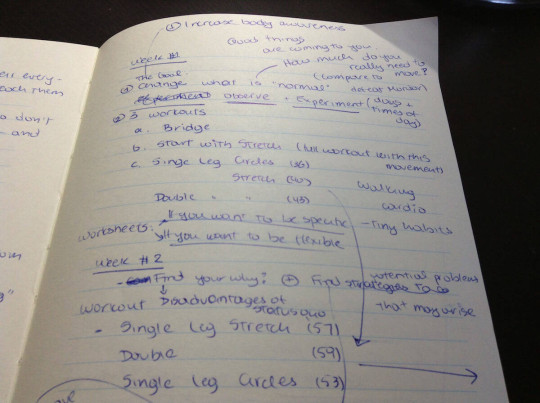 ④ Increase body awareness
Good things
are coming to you
Week #1
How much do you
really need to
(compare to move?
The Goal
① Change what is "normal"
Observe + Experiment (days +
times of
day)
② 3 workouts
a. Bridge
b. Start with Stretch (workout with this
movement)
c. Single Leg Circles (36)
Stretch (40)
Double " " (45)
Walking
cardio
- Tiny habits
Worksheets:
If you want to be specific
If you want to be flexible
Week #2
- Find your why? + Find strategies to
potential problems
that may arise
Disadvantages of
status quo
Workout
- Single Leg Stretch (57)
Double (59)
Single Leg Circles (53)
ell every-
each them
o don't
and